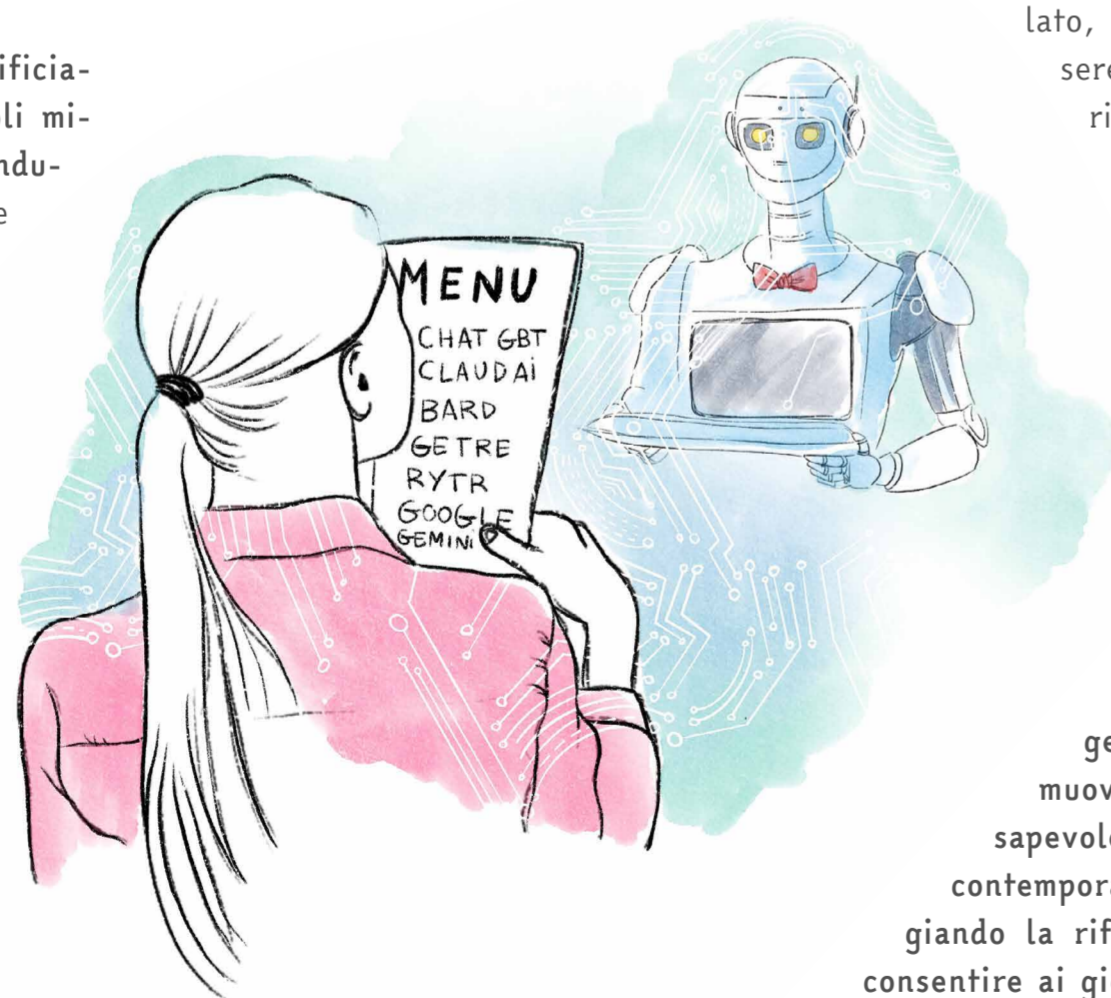 ificia-
li mi-
ndu-
e
MENU
CHAT GBT
CLAUDAi
BARD
GETRE
RYTR
GOOGLE
GEMINi
lato,
sere
ri
ge
muov
sapevole
contempora
giando la rif
consentire ai gi